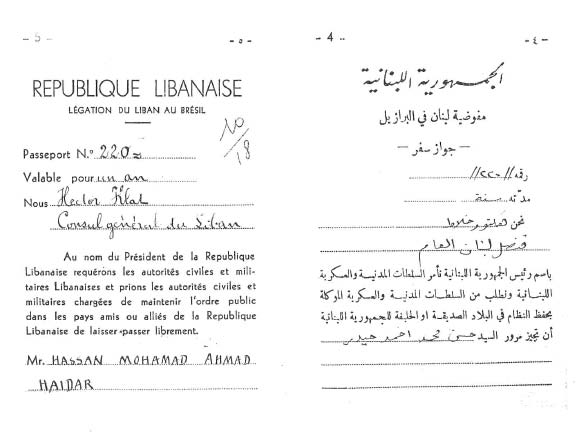 - 5 -
- ٥ -
REPUBLIQUE LIBANAISE
LÉGATION DU LIBAN AU BRÉSIL
10/18
Passeport N.º 220
Valable pour un an
Nous Hector Klat
Consul général du Liban
Au nom du Président de la Republique
Libanaise requérons les autorités civiles et mili-
taires Libanaises et prions les autorités civiles et
militaires chargées de maintenir l'ordre public
dans les pays amis ou alliés de la Republique
Libanaise de laisser-passer librement.
Mr. HASSAN MOHAMAD AHMAD
HAIDAR
- 4 -
- ٤ -
الجمهورية اللبنانية
مفوضية لبنان في البرازيل
- جواز سفر -
رقم ٢٢٠
مدته سنة
نحن هكتور خلاط
قنصل لبنان العام
باسم رئيس الجمهورية اللبنانية نأمر السلطات المدنية والعسكرية
اللبنانية ونطلب من السلطات المدنية والعسكرية الموكلة
بحفظ النظام في البلاد الصديقة او الحليفة للجمهورية اللبنانية
أن تجيز مرور السيد حسن محمد احمد حيدر